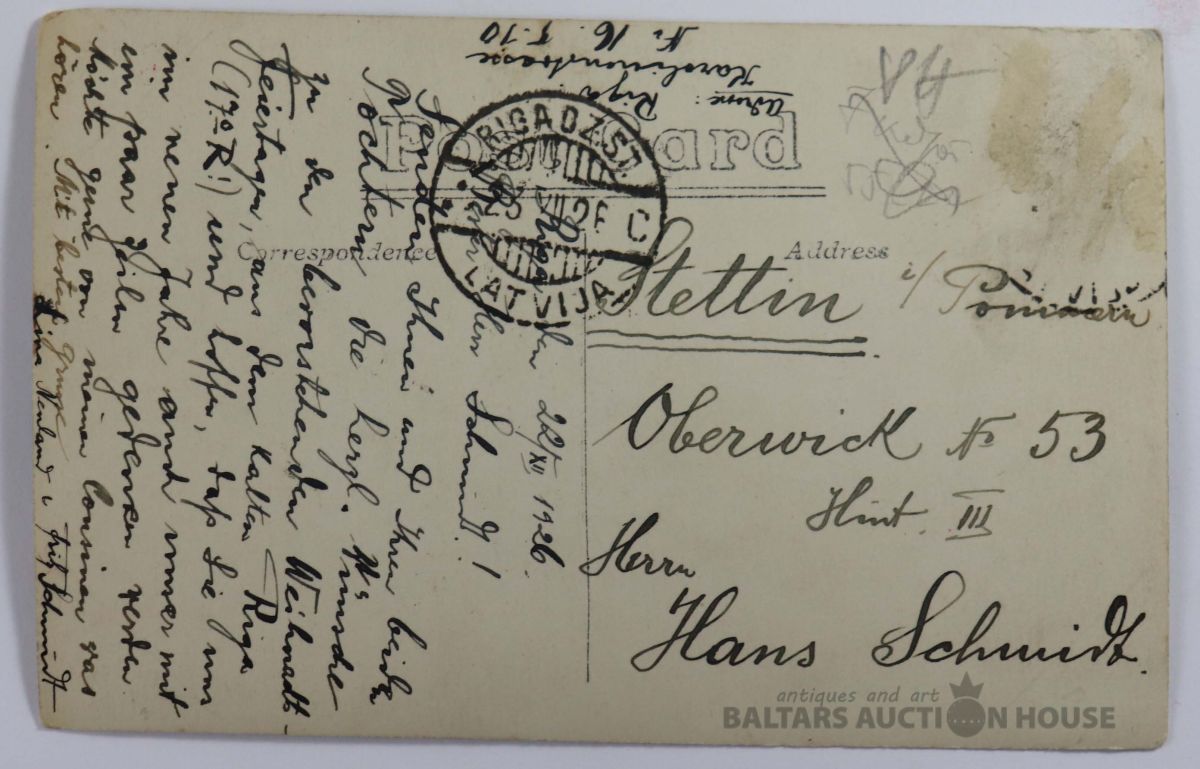 Post Card
Correspondence
Address
RIGA DZ. ST.
LATVIJA
Adresse: Riga
Karolinenstrasse
N: 16. T. 10
Riga den 22/XII 1926.
Schmidt!
Senden Ihnen und Ihren beiden
Töchtern die herzl. Wünsche
zu den bevorstehenden Weihnacht-
Feiertagen, aus dem kalten Riga
(17° R!) und hoffen, daß Sie nun
im neuen Jahre auch immer mit
ein paar Zeilen gedenken werden.
Möchte gerne von meinen Cousinen was
hören. Mit besten Gruss
Fritz Schmidt
Stettin i/ Pommern
Oberwiek № 53
Hint. III
Herrn
Hans Schmidt.
antiques and art
BALTARS AUCTION HOUSE